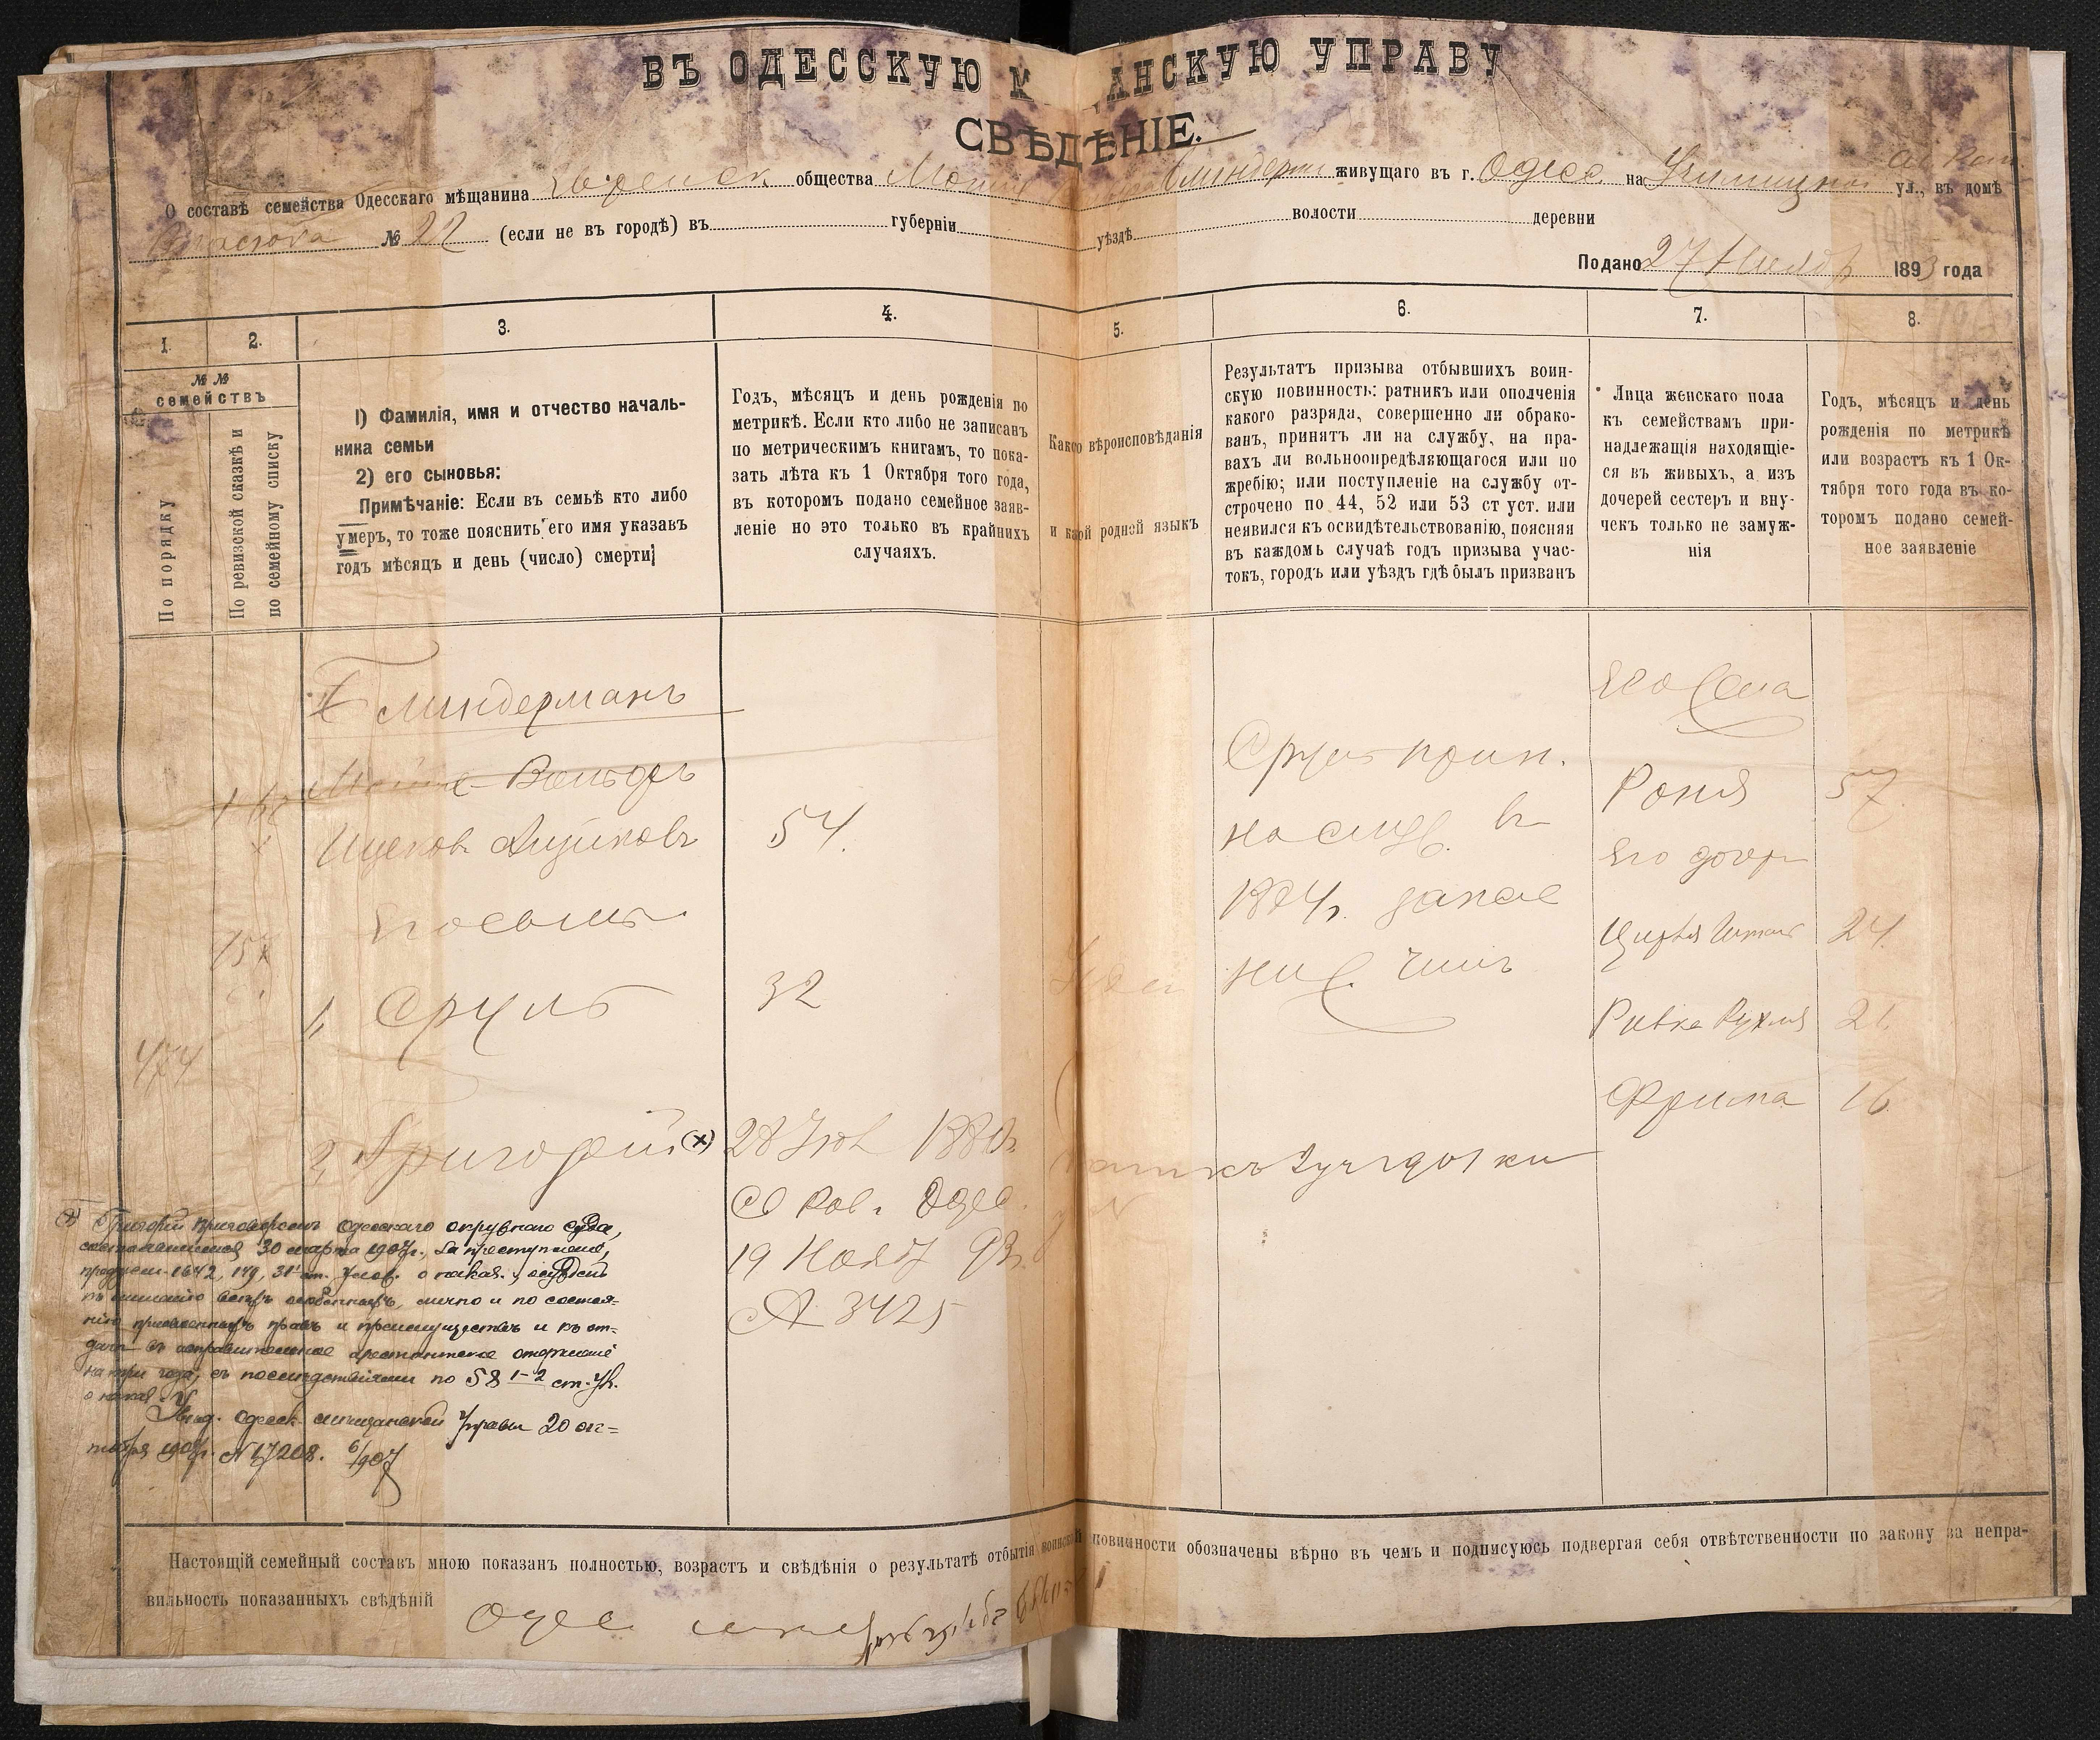 ВЪ ОДЕССКУЮ М АНСКУЮ УПРАВУ
СВѢДѢНІЕ.
О составѣ семейства Одесскаго мѣщанина общества живущаго въ г. Одес на ул., въ домѣ
№ 22 (если не въ городѣ) въ губерніи уѣздѣ волости деревни
Подано 27 Ноября 1893 года
1. 2. 3. 4. 5. 6. 7. 8.
№ №
семействъ
По порядку
По ревизской сказкѣ и
по семейному списку
1) Фамилія, имя и отчество началь-
ника семьи
2) его сыновья:
Примѣчаніе: Если въ семьѣ кто либо
умеръ, то тоже пояснить его имя указавъ
годъ мѣсяцъ и день (число) смерти;
Годъ, мѣсяцъ и день рожденія по
метрикѣ. Если кто либо не записанъ
по метрическимъ книгамъ, то пока-
зать лѣта къ 1 Октября того года,
въ которомъ подано семейное заяв-
леніе но это только въ крайнихъ
случаяхъ.
Какого вѣроисповѣданія
и какой родной языкъ
Результатъ призыва отбывшихъ воин-
скую повинность: ратникъ или ополченія
какого разряда, совершенно ли обрако-
ванъ, принятъ ли на службу, на пра-
вахъ ли вольноопредѣляющагося или по
жребію; или поступленіе на службу от-
строчено по 44, 52 или 53 ст уст. или
неявился къ освидѣтельствованію, поясняя
въ каждомъ случаѣ годъ призыва учас-
токъ, городъ или уѣздъ гдѣ былъ призванъ
Лица женскаго пола
къ семействамъ при-
надлежащія находящіе-
ся въ живыхъ, а изъ
дочерей сестеръ и вну-
чекъ только не замуж-
нія
Годъ, мѣсяцъ и день
рожденія по метрикѣ
или возрастъ къ 1 Ок-
тября того года въ ко-
торомъ подано семей-
ное заявленіе
Блиндерманъ
Мошко Вольфъ
Ицков
54.
Его сынъ
1, Сруль 32
474
2, Григорій (х) 28 188
Одес.
19 Нояб 93
№ 3425
Сруль прин.
на служ. въ
г. запас
ниж. чинъ
Его жена
Рояся 57
Его дочери
24.
Ривка Рухля 21.
Фрима 16
(х) Григорій приговоромъ Одесскаго окружнаго суда,
состоявшимся 30 марта 1907г., за преступленіе,
предусм. 1642, 149, 31 ст. Улож. о наказ., осужденъ
къ лишенію всѣхъ особенныхъ, лично и по состоя-
нію присвоенныхъ правъ и преимуществъ и къ от-
дачѣ въ исправительное арестантское отдѣленіе
на три года, съ послѣдствіями по 58 1-2 ст. Ул.
о наказ.
Увѣд. Одесск. мѣщанской Управы 20 ок-
тября 1907г. № 17208. 6/907
Настоящій семейный составъ мною показанъ полностью, возрастъ и свѣдѣнія о результатѣ отбытія воинской повинности обозначены вѣрно въ чемъ и подписуюсь подвергая себя отвѣтственности по закону за непра-
вильность показанныхъ свѣдѣній